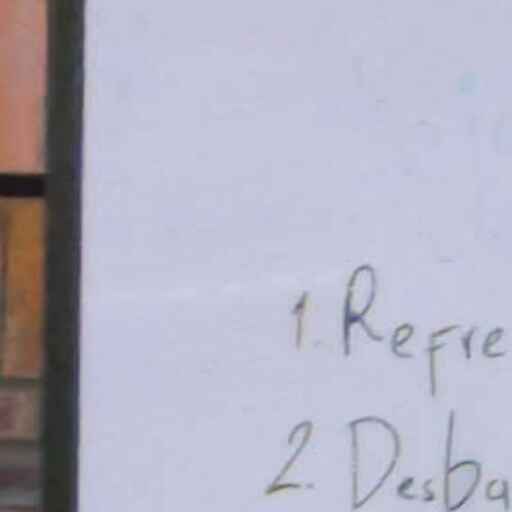 1. Refre
2. Desba